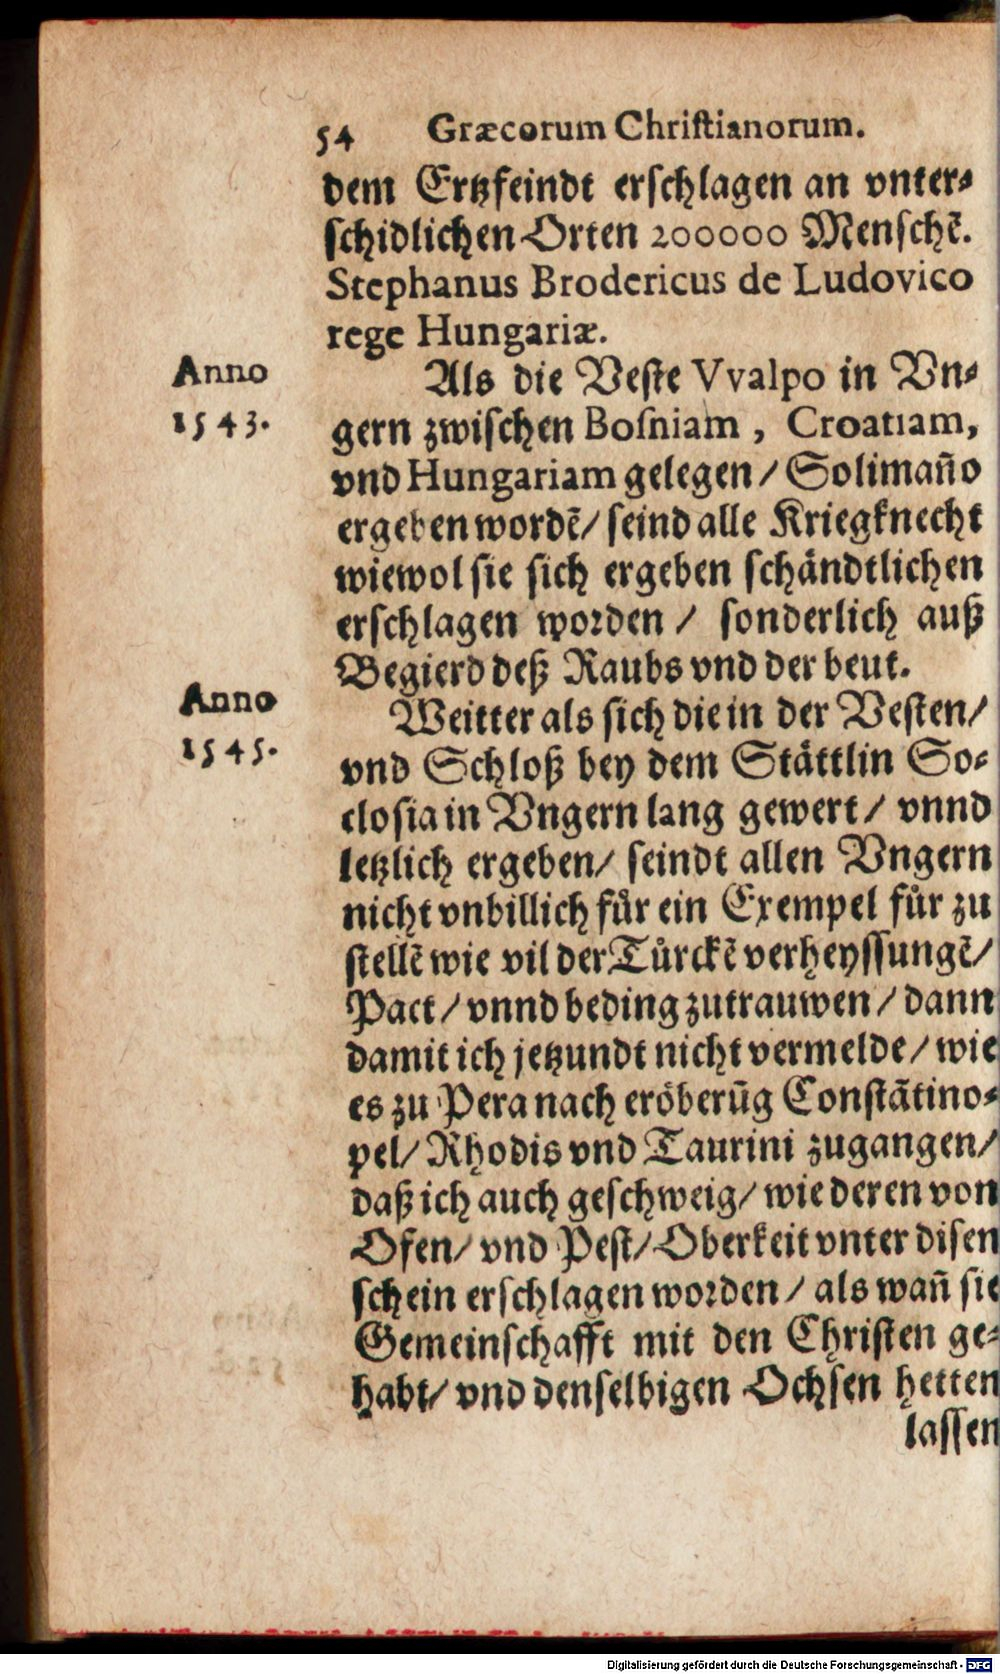 54 Græcorum Chriſtianorum.
dem Ertzfeindt erſchlagen an vnter⸗
ſchidlichen Orten 200000 Menſchẽ.
Stephanus Brodericus de Ludovico
rege Hungariæ.
Anno
1543.
Als die Veſte Vvalpo in Vn⸗
gern zwiſchen Boſniam, Croatiam,
vnd Hungariam gelegen/ Solimañο
ergeben wordẽ/ ſeind alle Kriegknecht
wiewol ſie ſich ergeben ſchändtlichen
erſchlagen worden/ ſonderlich auß
Begierd deß Raubs vnd der beut.
Anno
1545.
Weitter als ſich die in der Veſten/
vnd Schloß bey dem Stättlin So⸗
cloſia in Vngern lang gewert/ vnnd
letzlich ergeben/ ſeindt allen Vngern
nicht vnbillich fuͤr ein Exempel fuͤr zu
ſtellẽ wie vil der Tuͤrckẽ verheyſſungẽ/
Pact/ vnnd beding zutrauwen/ dann
damit ich jetzundt nicht vermelde/ wie
es zu Pera nach eröberũg Conſtãtino⸗
pel/ Rhodis vnd Taurini zugangen/
daß ich auch geſchweig/ wie deren von
Ofen/ vnd Peſt/ Oberkeit vnter diſen
ſchein erſchlagen worden/ als wañ ſie
Gemeinſchafft mit den Chriſten ge⸗
habt/ vnd denſelbigen Ochſen hetten
laſſen
Digitalisierung gefördert durch die Deutsche Forschungsgemeinschaft - DFG